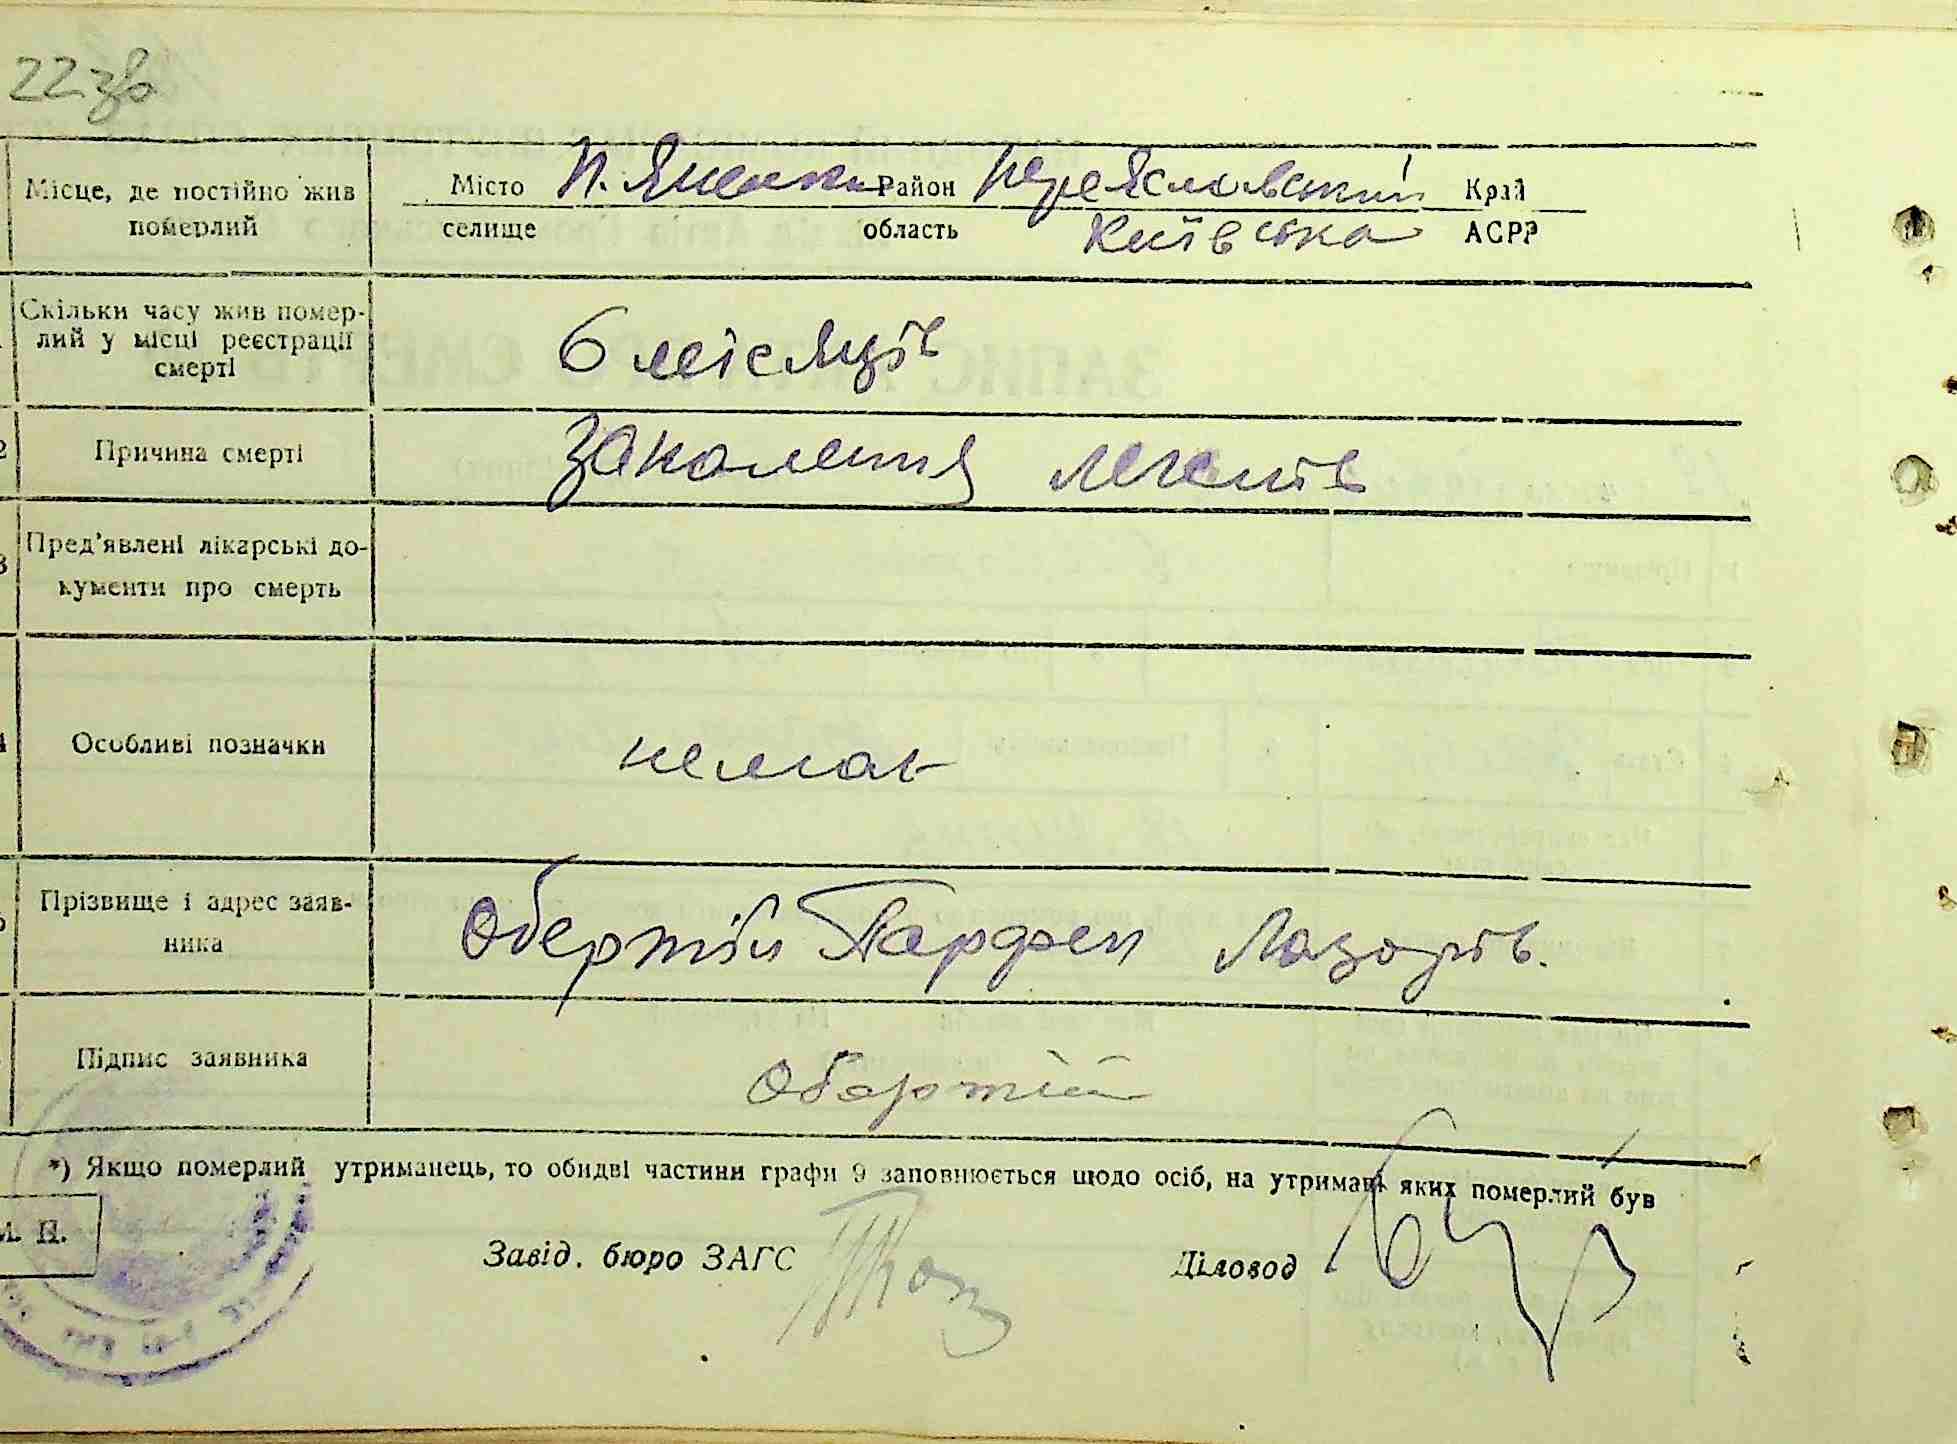 22зв
Місце, де постійно жив
померлий
Місто п. Яненки Район Переяславський Край
селище область Київська АСРР
Скільки часу жив помер-
лий у місці реєстрації
смерті
6 місяців
2 Причина смерті Закалення легенів
3 Пред'явлені лікарські до-
кументи про смерть
4 Особливі позначки немає
Прізвище і адрес заяв-
ника
Обертій Парфен Лазорів.
Підпис заявника Обартій
*) Якщо померлий утриманець, то обидві частини графи 9 заповнюється щодо осіб, на утримані яких померлий був
М. П.
Завід. бюро ЗАГС Діловод